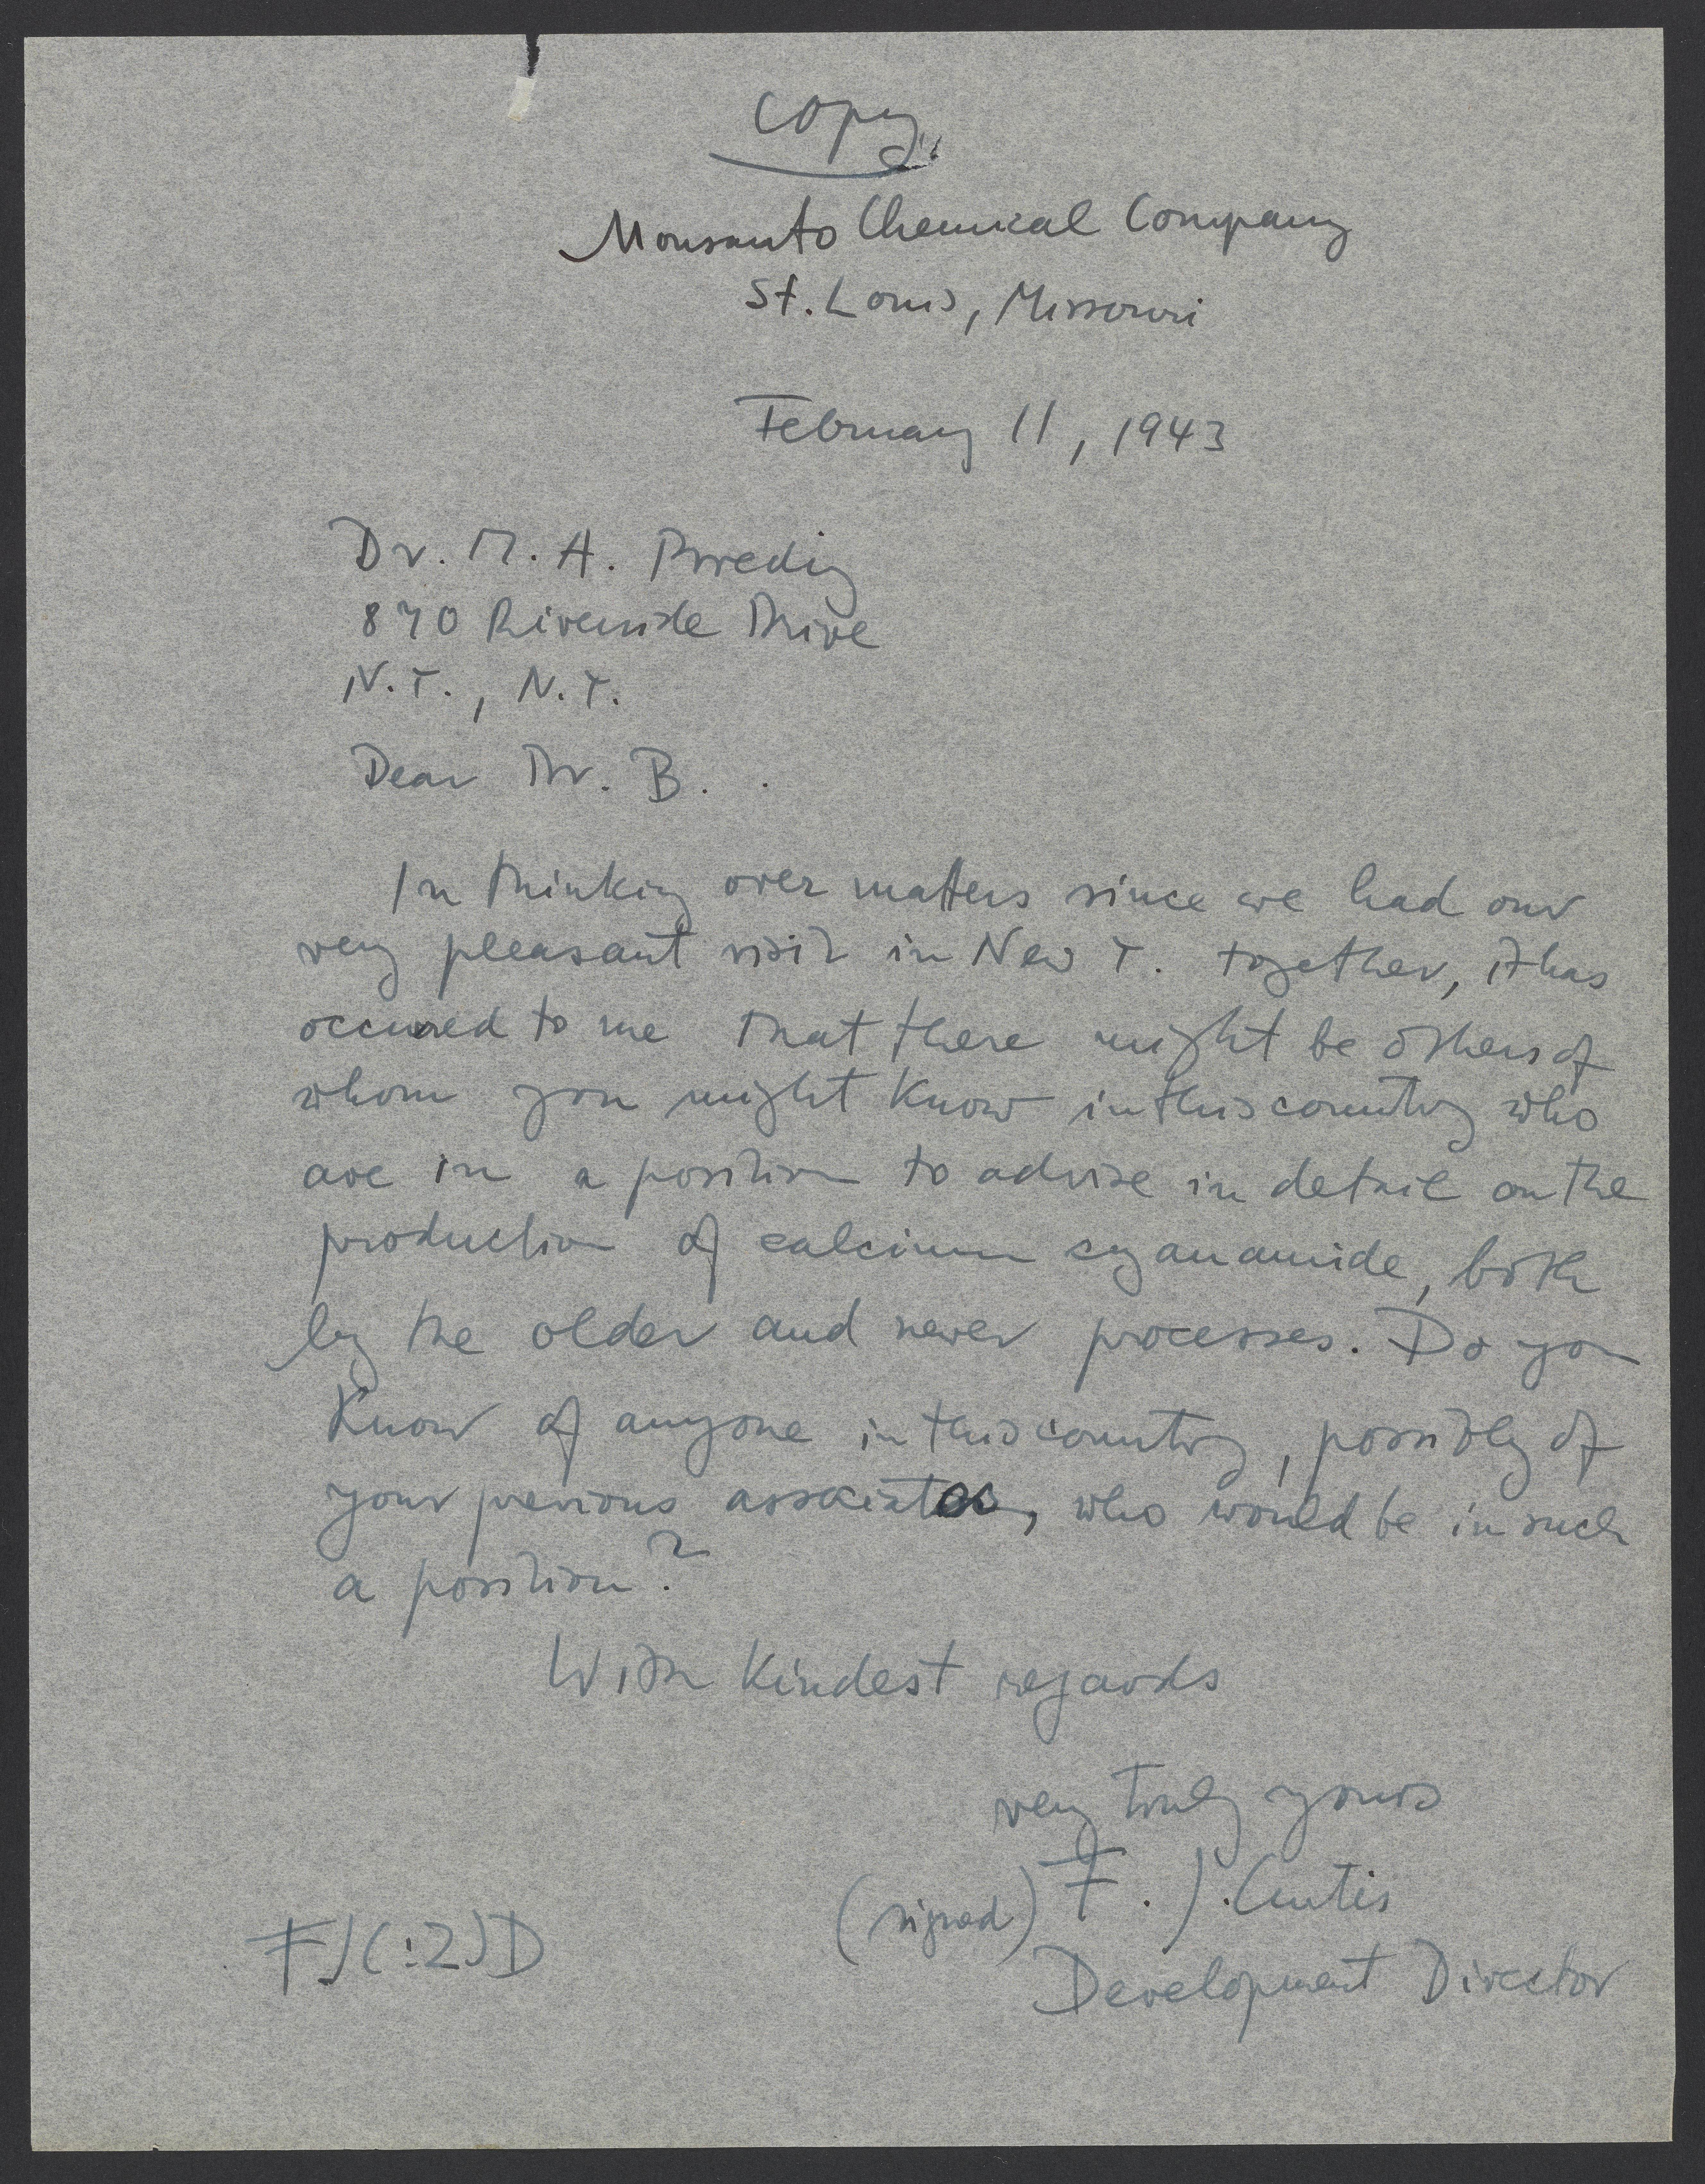 Copy
Monsanto Chemical Company
St. Louis, Missouri
February 11, 1943
Dr. M. A. Bredig
870 Riverside Drive
N.Y., N.Y.
Dear Dr. B.
In thinking over matters since we had our
very pleasant visit in New Y. together, it has
occured to me that there might be others of
whom you might know in this country who
are in a position to advise in detail on the
production of calcium cyanamide, both
by the older and newer processes. Do you
know of anyone in this country, possibly of
your previous associates, who would be in such
a position?
With kindest regards
very truly yours
(signed) F. J. Curtis
FJC:ZJD
Development Director